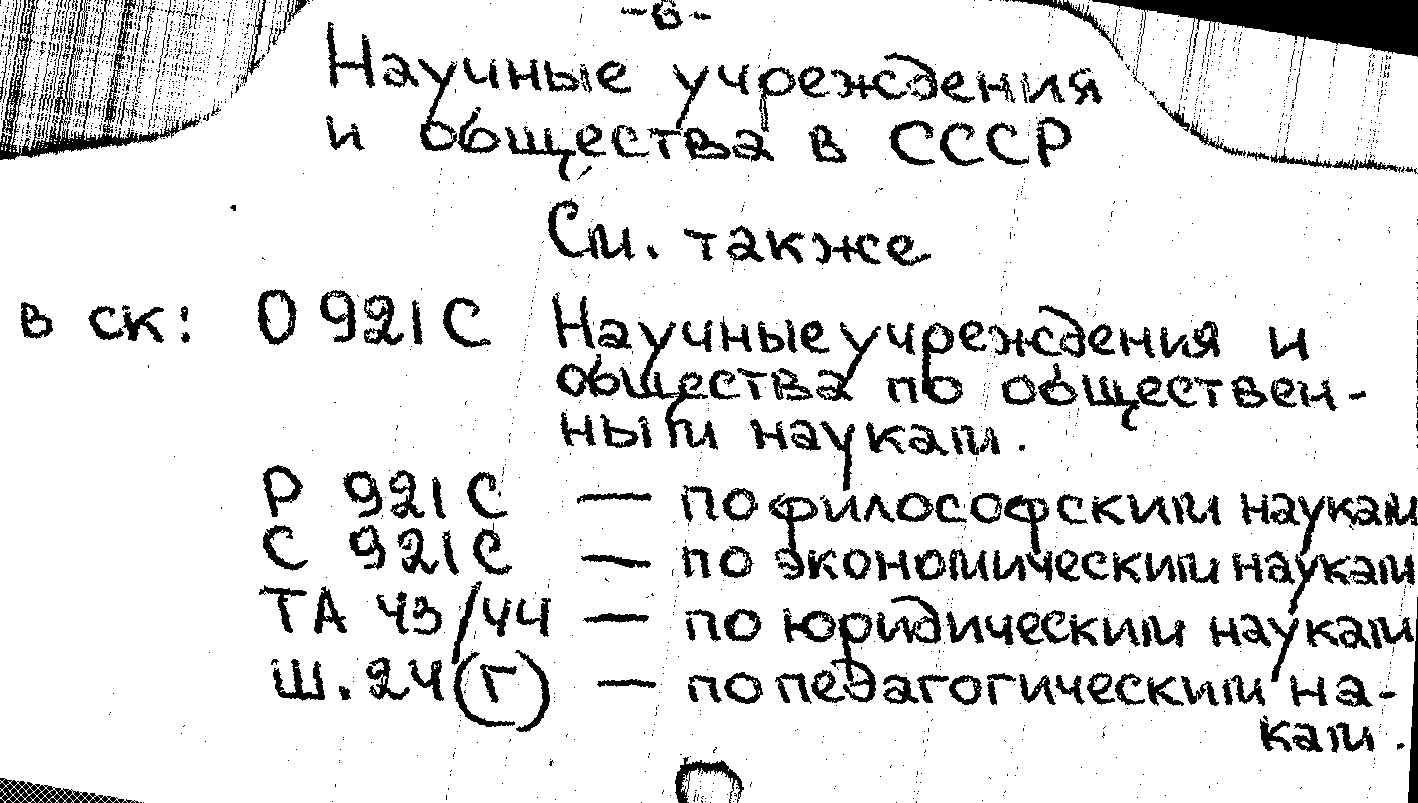 -6-
Научные учреждения
и общества в СССР
См. также
в ск: О 921 С Научные учреждения и
общества по обществен-
ным наукам.
Р 921 С — по философским наукам
С 921 С — по экономическим наукам
ТА 43/44 — по юридическим наукам
Ш. 24 (Г) — по педагогическим на-
кам.